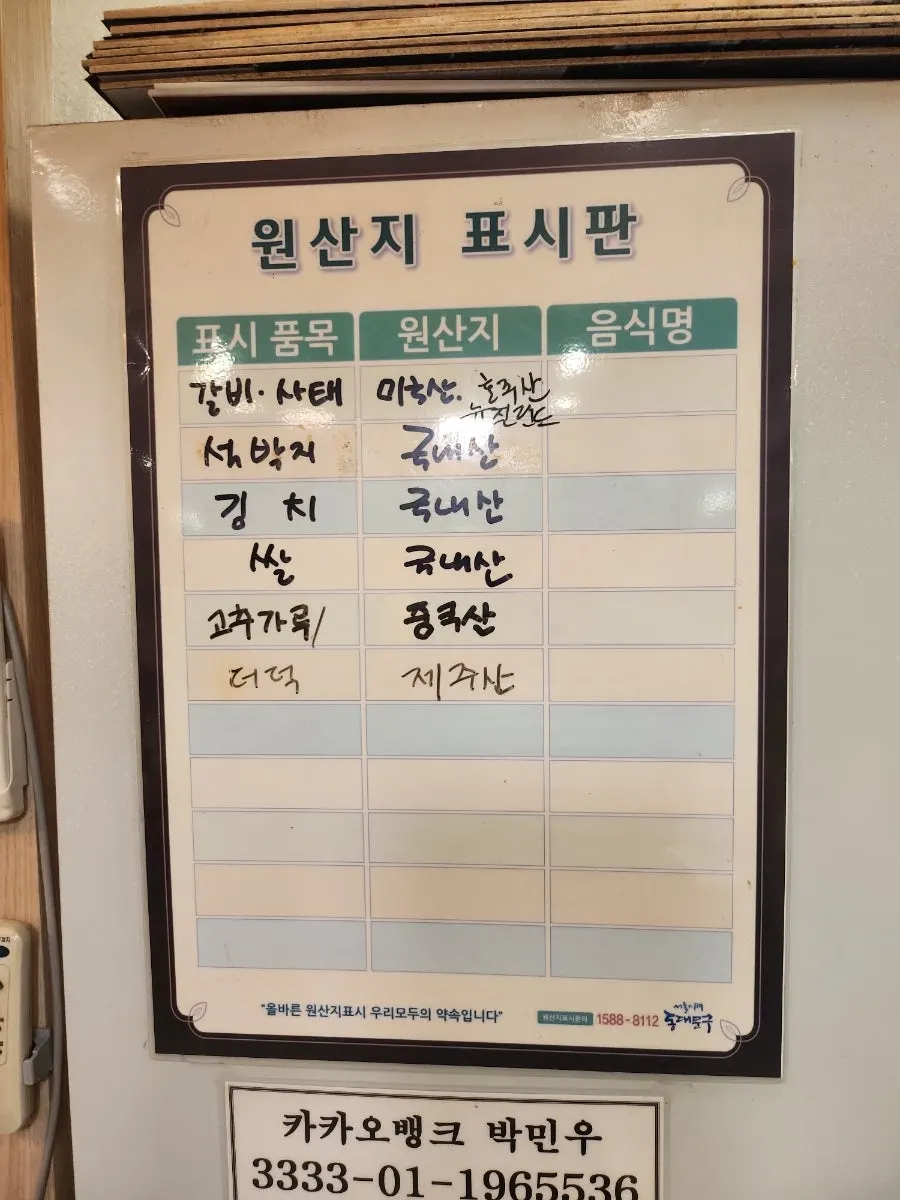 원산지 표시판
표시 품목 원산지 음식명
갈비·사태 미국산. 호주산
뉴질랜드
석박지 국내산
김치 국내산
쌀 국내산
고추가루/ 중국산
더덕 제주산
"올바른 원산지표시 우리모두의 약속입니다" 원산지표시문의 1588-8112 동대문구
카카오뱅크 박민우
3333-01-1965536